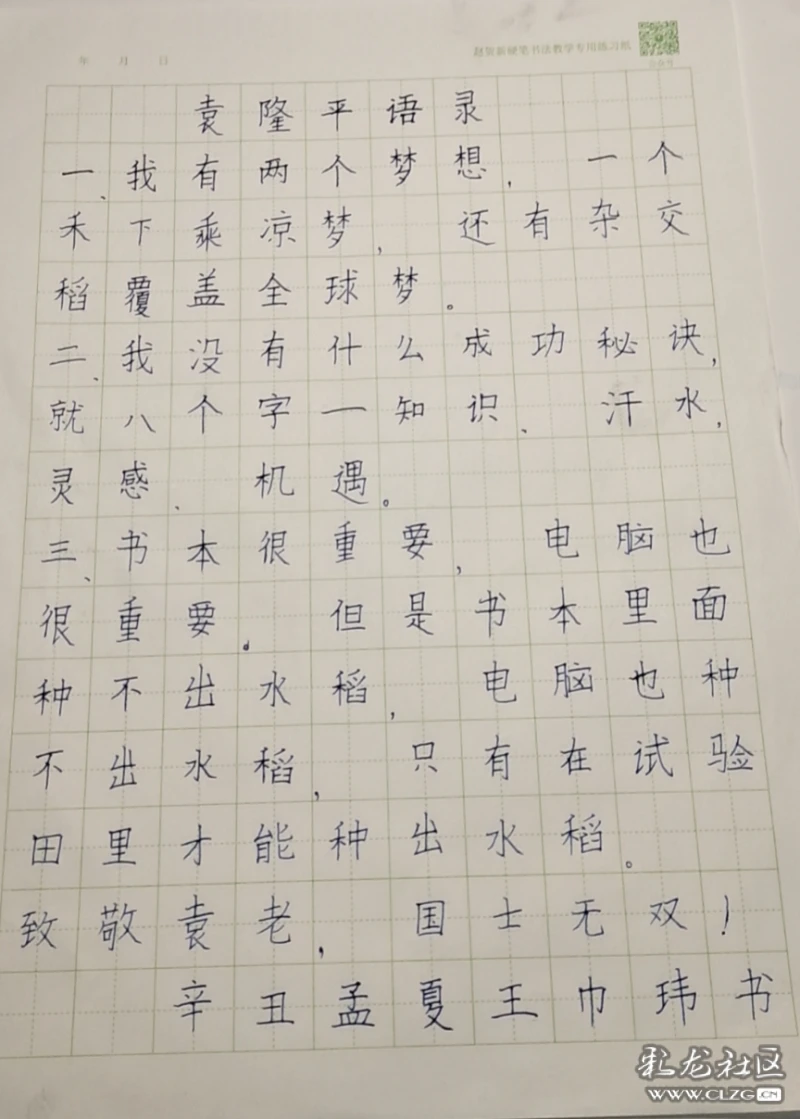 年 月 日
硬笔书法教学专用练习纸
袁隆平语录
一、我有两个梦想,一个
禾下乘凉梦,还有杂交
稻覆盖全球梦。
二、我没有什么成功秘诀,
就八个字一知识、汗水,
灵感、机遇。
三、书本很重要,电脑也
很重要。但是书本里面
种不出水稻,电脑也种
不出水稻,只有在试验
田里才能种出水稻。
致敬袁老,国士无双!
辛丑孟夏王巾玮书
社区
WWW.CLZG.CN